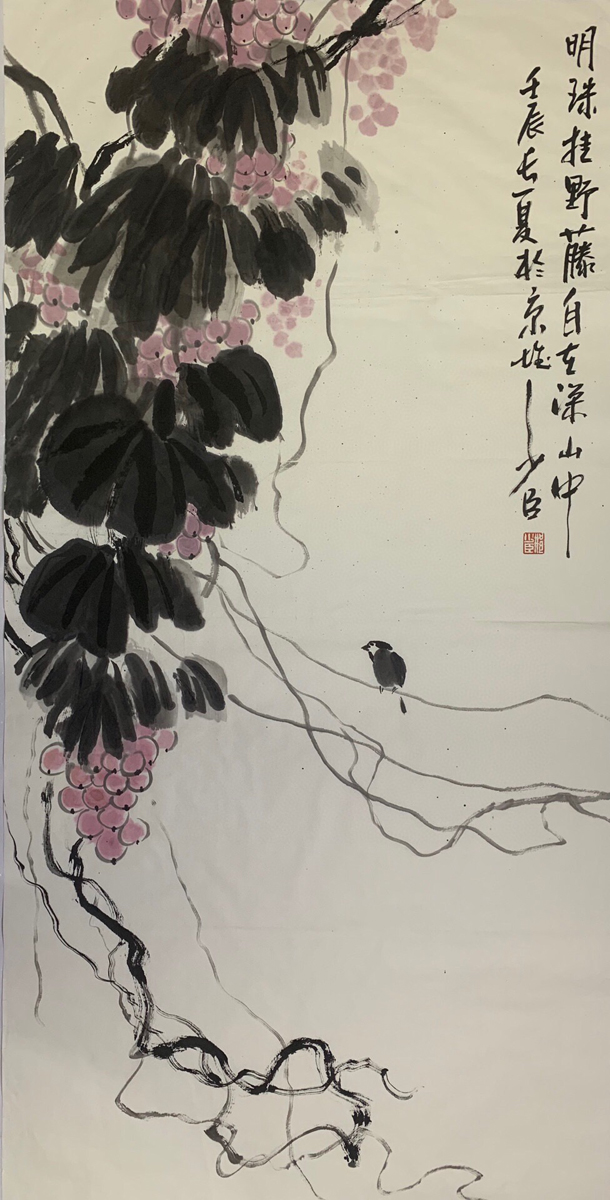 明珠挂野藤自在深山中
壬辰长夏于京城少臣